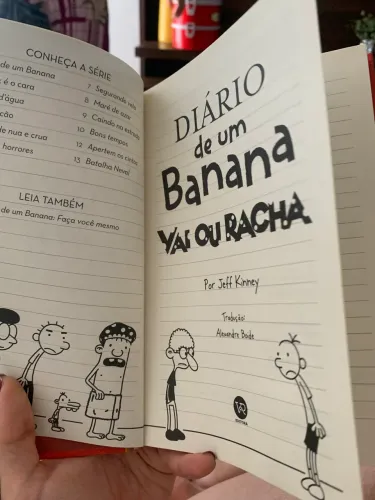 CONHEÇA A SÉRIE
de um Banana
é a cara
d'água
ção
de nua e crua
horrores
7 Segurando vela
8 Maré de azar
9 Caindo na estrada
10 Bons tempos
12 Apertem os cintos
13 Batalha Neval
LEIA TAMBÉM
de um Banana: Faça você mesmo
DIÁRIO
de um
Banana
VAI OU RACHA
Por Jeff Kinney
Tradução:
Alexandre Boide
VR
EDITORA